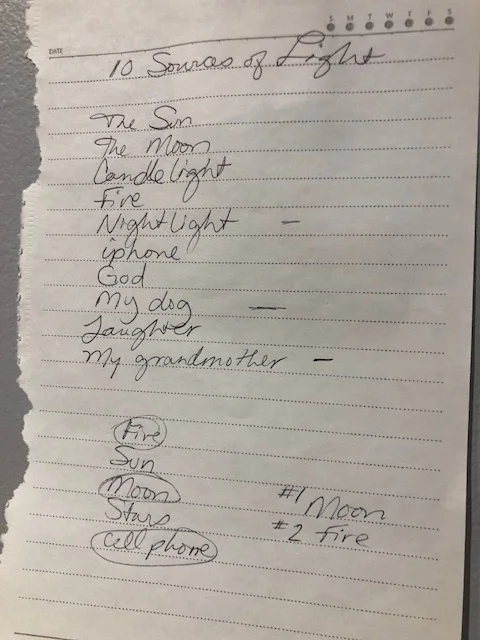 S M T W T F S
DATE
10 Sources of Light
The Sun
The Moon
Candlelight
Fire
Nightlight —
iphone
God
My dog —
Laughter
My grandmother —
Fire
Sun
Moon
#1 Moon
Stars
#2 Fire
Cell phone